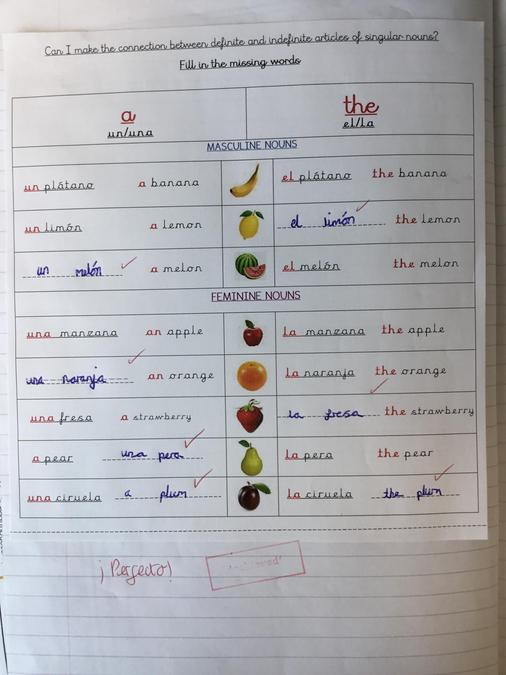 Can I make the connection between definite and indefinite articles of singular nouns?
Fill in the missing words
a the
un/una el/la
MASCULINE NOUNS
un plátano a banana el plátano the banana
un limón a lemon el limón the lemon
un melón a melon el melón the melon
FEMININE NOUNS
una manzana an apple la manzana the apple
una naranja an orange la naranja the orange
una fresa a strawberry la fresa the strawberry
a pear una pera la pera the pear
una ciruela a plum la ciruela the plum
¡Perfecto!